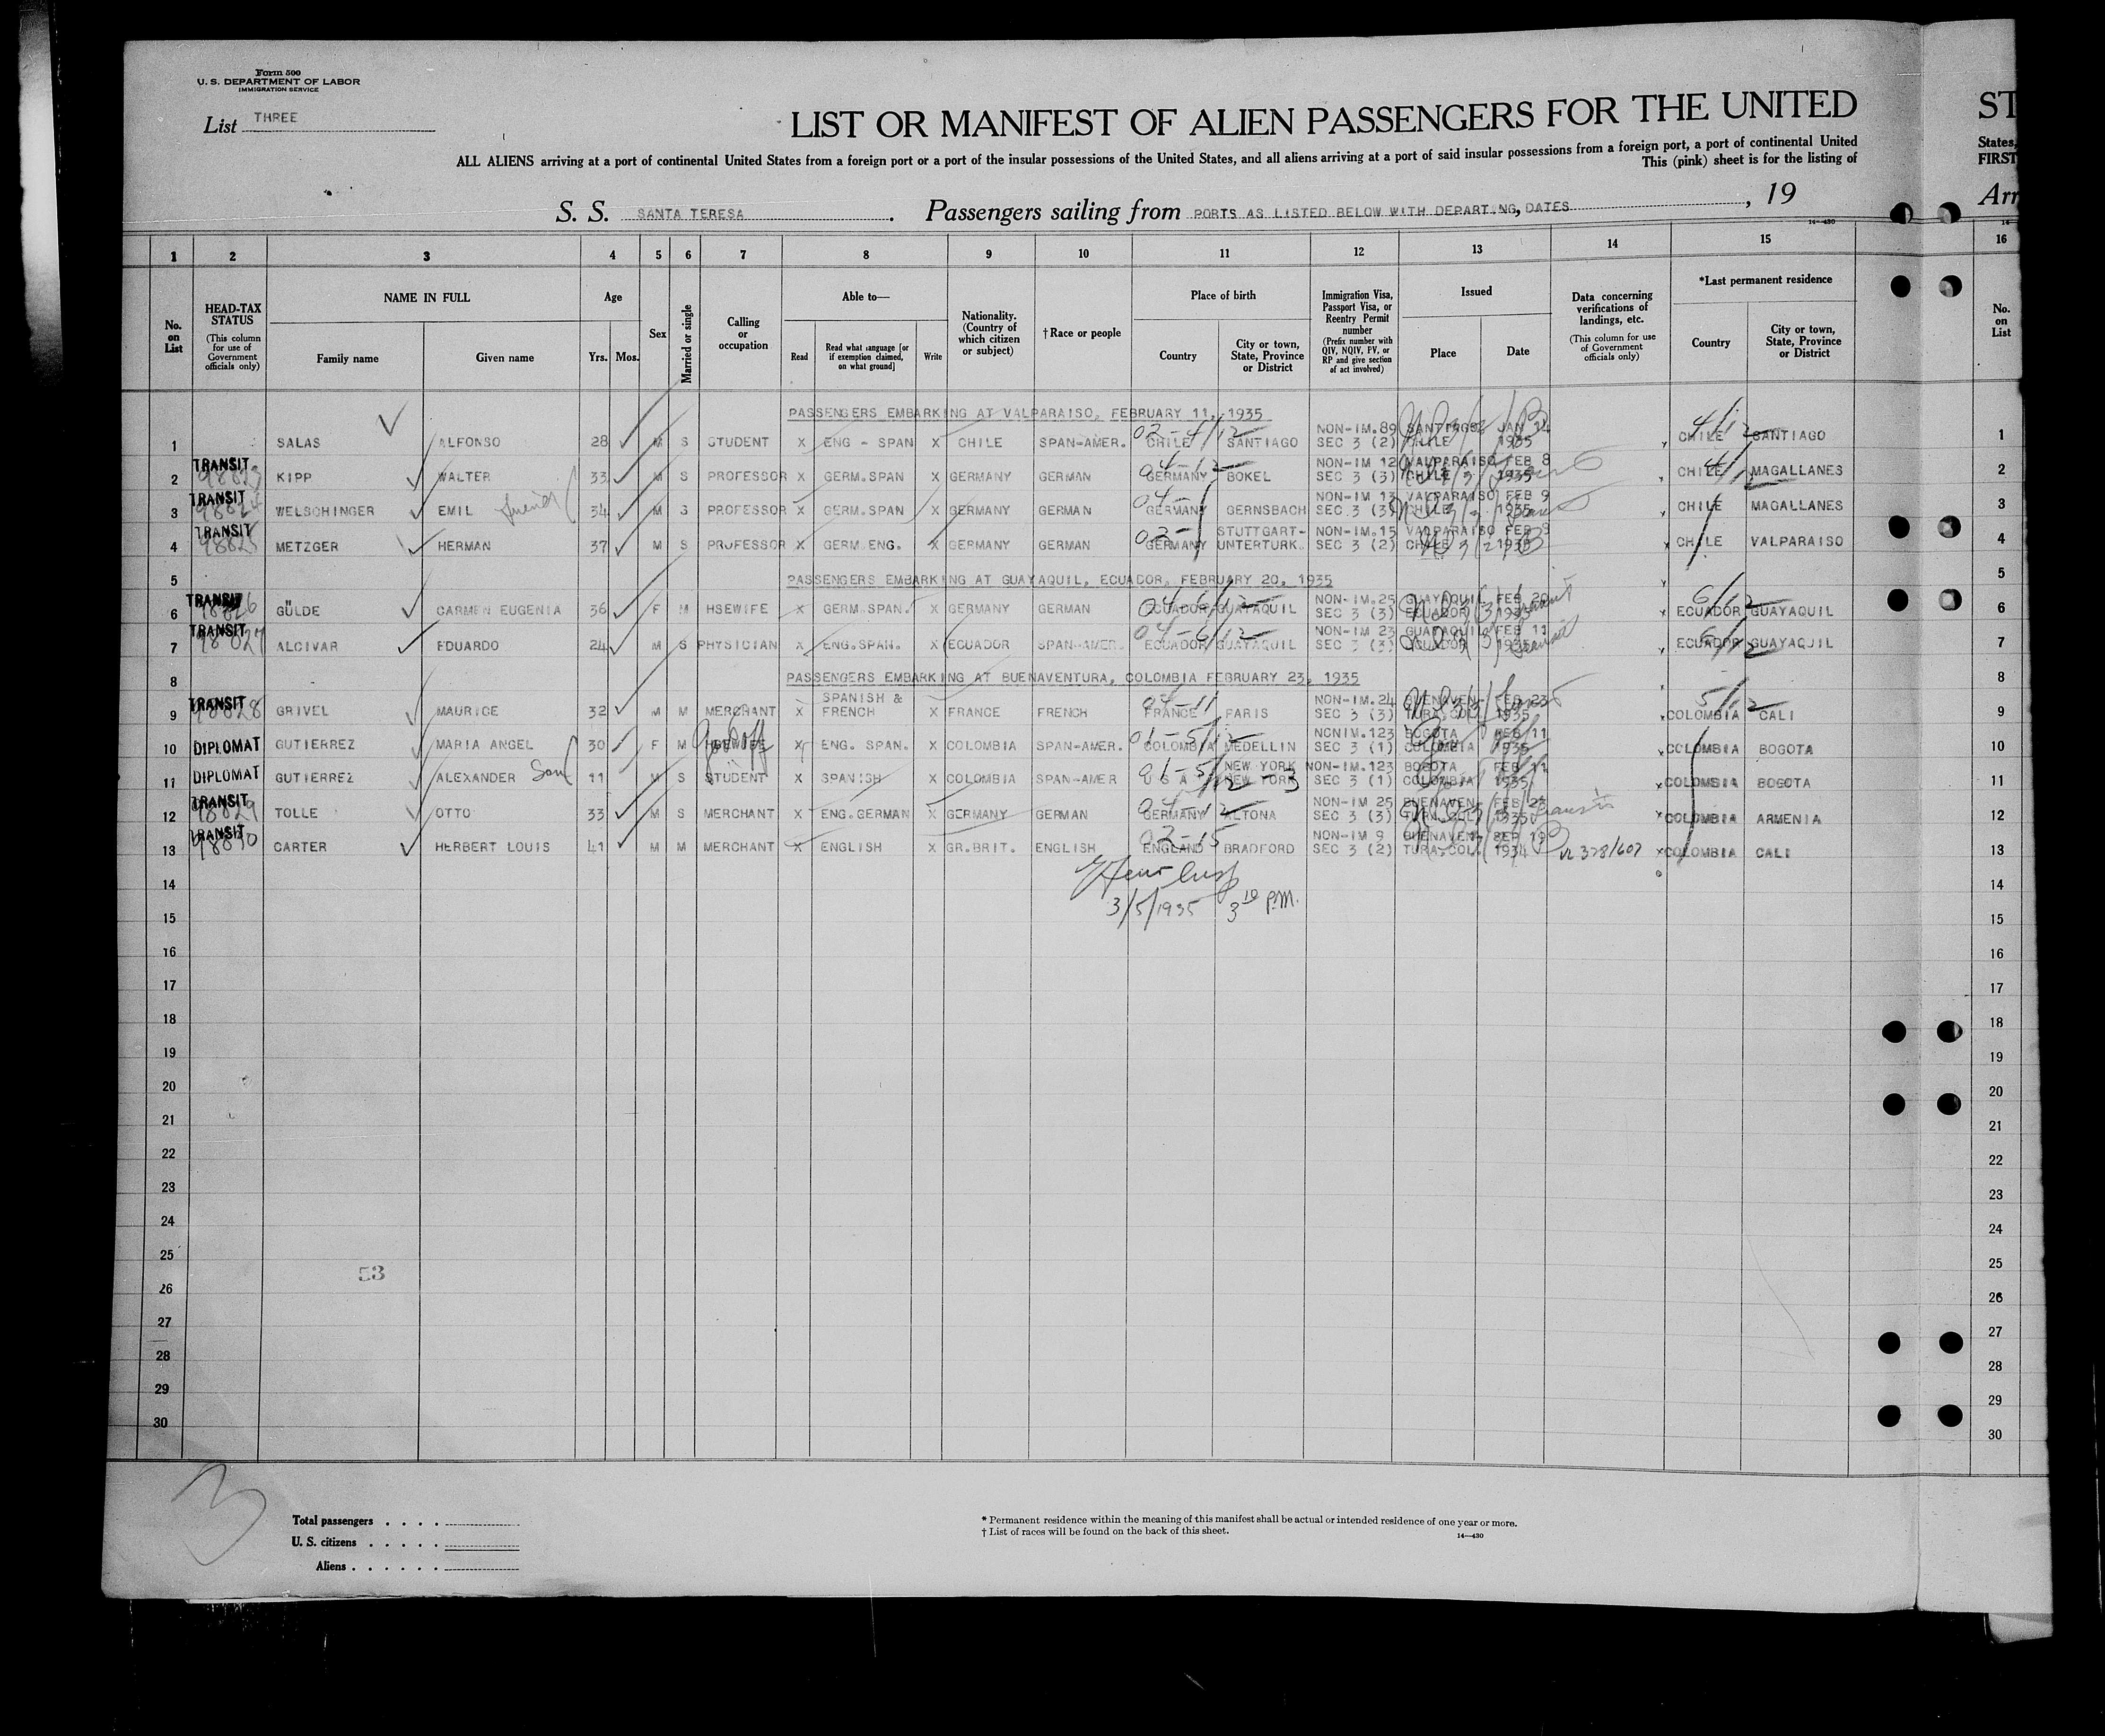 Form 500
U. S. DEPARTMENT OF LABOR
IMMIGRATION SERVICE
List THREE
LIST OR MANIFEST OF ALIEN PASSENGERS FOR THE UNITED ST
ALL ALIENS arriving at a port of continental United States from a foreign port or a port of the insular possessions of the United States, and all aliens arriving at a port of said insular possessions from a foreign port, a port of continental United States,
This (pink) sheet is for the listing of FIRST
S. S. SANTA TERESA. Passengers sailing from PORTS AS LISTED BELOW WITH DEPARTING, DATES, 19 Arr
14-430
1 2 3 4 5 6 7 8 9 10 11 12 13 14 15 16
No. on List
HEAD-TAX STATUS (This column for use of Government officials only)
NAME IN FULL Family name Given name
Age Yrs. Mos.
Sex
Married or single
Calling or occupation
Able to— Read Read what language [or if exemption claimed, on what ground] Write
Nationality. (Country of which citizen or subject)
†Race or people
Place of birth Country City or town, State, Province or District
Immigration Visa, Passport Visa, or Reentry Permit number (Prefix number with QIV, NQIV, PV, or RP and give section of act involved)
Issued Place Date
Data concerning verifications of landings, etc. (This column for use of Government officials only)
*Last permanent residence Country City or town, State, Province or District
No. on List
PASSENGERS EMBARKING AT VALPARAISO, FEBRUARY 11, 1935
1 SALAS ALFONSO 28 M S STUDENT X ENG - SPAN X CHILE SPAN-AMER. 02-4/12 CHILE SANTIAGO NON-IM.89 SEC 3 (2) SANTIAGO CHILE JAN 14 1935 4/12 CHILE SANTIAGO 1
2 TRANSIT 98823 KIPP WALTER 33 M S PROFESSOR X GERM.SPAN X GERMANY GERMAN 04-12 GERMANY BOKEL NON-IM 12 SEC 3 (3) VALPARAISO CHILE FEB 8 1935 4/12 CHILE MAGALLANES 2
3 TRANSIT 98824 WELSCHINGER EMIL friend 34 M S PROFESSOR X GERM.SPAN X GERMANY GERMAN 04- GERMANY GERNSBACH NON-IM 13 SEC.3 (3) VALPARAISO CHILE FEB 9 1935 CHILE MAGALLANES 3
4 TRANSIT 98825 METZGER HERMAN 37 M S PROFESSOR X GERM.ENG. X GERMANY GERMAN 02- GERMANY STUTTGART-UNTERTURK. NON-IM.15 SEC 3 (2) VALPARAISO CHILE FEB 9 1935 CHILE VALPARAISO 4
5 PASSENGERS EMBARKING AT GUAYAQUIL, ECUADOR, FEBRUARY 20, 1935 5
6 TRANSIT 98826 GÜLDE CARMEN EUGENIA 36 F M HSEWIFE X GERM.SPAN. X GERMANY GERMAN 04-6/12 ECUADOR GUAYAQUIL NON-IM.25 SEC 3 (3) GUAYAQUIL ECUADOR FEB 20 1935 6/12 ECUADOR GUAYAQUIL 6
7 TRANSIT 98827 ALCIVAR EDUARDO 24 M S PHYSICIAN X ENG.SPAN. X ECUADOR SPAN-AMER. 04-6/12 ECUADOR GUAYAQUIL NON-IM 23 SEC 3 (3) GUAYAQUIL ECUADOR FEB 11 1935 6/12 ECUADOR GUAYAQUIL 7
8 PASSENGERS EMBARKING AT BUENAVENTURA, COLOMBIA FEBRUARY 23, 1935 8
9 TRANSIT 98828 GRIVEL MAURICE 32 M M MERCHANT X SPANISH & FRENCH X FRANCE FRENCH 04-11 FRANCE PARIS NON-IM.24 SEC 3 (3) BUENAVEN-TURA.COL. FEB 23 1935 5/12 COLOMBIA CALI 9
10 DIPLOMAT GUTIERREZ MARIA ANGEL 30 F M HSEWIFE X ENG. SPAN. X COLOMBIA SPAN-AMER. 01-5/12 COLOMBIA MEDELLIN NONIM.123 SEC 3 (1) BOGOTA COLOMBIA FEB 11 1935 COLOMBIA BOGOTA 10
11 DIPLOMAT GUTIERREZ ALEXANDER Son 11 M S STUDENT X SPANISH X COLOMBIA SPAN-AMER 01-5/12 U S A NEW YORK NEW YORK 3 NON-IM.123 SEC 3 (1) BOGOTA COLOMBIA FEB 11 1935 COLOMBIA BOGOTA 11
12 TRANSIT 98829 TOLLE OTTO 33 M S MERCHANT X ENG.GERMAN X GERMANY GERMAN 04-12 GERMANY ALTONA NON-IM 25 SEC 3 (3) BUENAVEN-TURA.COL. FEB 23 1935 Transit COLOMBIA ARMENIA 12
13 TRANSIT 98830 CARTER HERBERT LOUIS 41 M M MERCHANT X ENGLISH X GR.BRIT. ENGLISH 02-15 ENGLAND BRADFORD NON-IM 9 SEC 3 (2) BUENAVEN-TURA.COL. SEP 19 1934 VL 328/607 COLOMBIA CALI 13
14 14
15 3/5/1935 3 10 P.M. 15
16 16
17 17
18 18
19 19
20 20
21 21
22 22
23 23
24 24
25 25
53
26 26
27 27
28 28
29 29
30 30
3
Total passengers . . . .
U. S. citizens . . . . .
Aliens . . . . . .
* Permanent residence within the meaning of this manifest shall be actual or intended residence of one year or more.
† List of races will be found on the back of this sheet.
14—430